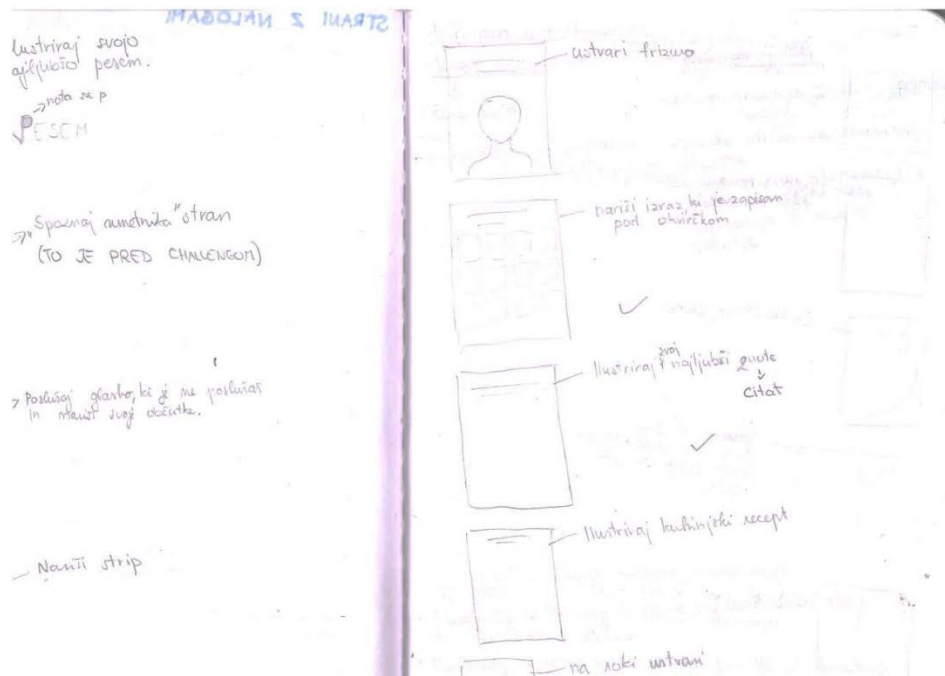 STRANI Z NALOGAMI
lustriraj svojo
ajljubšo pesem.
nota za p
PESEM
"Spoznaj umetnika" stran
(TO JE PRED CHALLENGOM)
Poslušaj glasbo, ki je ne poslušaš
in nariši svoje občutke.
Nariši strip
ustvari frizuro
nariši izraz, ki je zapisan
pod okvirčkom
Ilustriraj svoj najljubši quote
citat
Ilustriraj kuhinjski recept
na roki ustvari